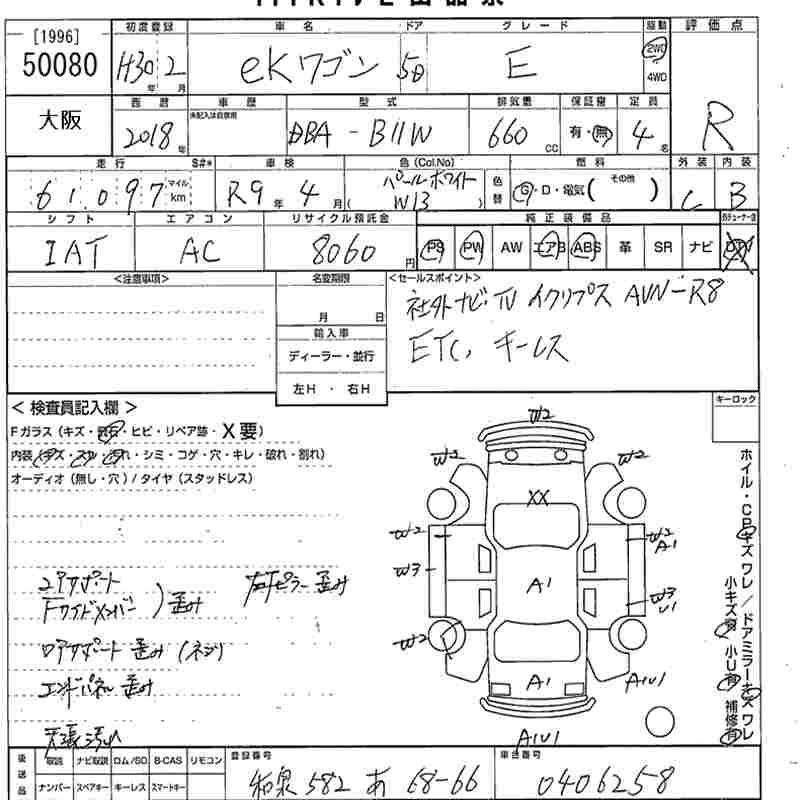 [1996]
50080
大阪
初度登録 車名 ドア グレード 駆動 評価点
H30年 2月 eKワゴン 5D E 2WD 4WD R
西暦 車歴 型式 排気量 保証書 定員
未記入は自家用
2018年 DBA-B11W 660cc 有・無 4名
走行 S#* 車検 色(Col.No) 燃料 外装 内装
61,097 マイル km R9年 4月 パールホワイト ( W13 ) 色替 G・D・電気( その他 ) C B
シフト エアコン リサイクル預託金 純正装備品
IAT AC 8060円 PS PW AW エアB ABS 革 SR ナビ DTV
<注意事項> 名変期限 <セールスポイント>
月 日
社外ナビ TV イクリプス AVN-R8
輸入車
ディーラー・並行
ETC, キーレス
左H ・ 右H
< 検査員記入欄 > キーロック
Fガラス (キズ・飛石・ヒビ・リペア跡・X要)
内装 (キズ・スレ・汚れ・シミ・コゲ・穴・キレ・破れ・割れ)
オーディオ (無し・穴) / タイヤ (スタッドレス)
W2
W2 W2
XX
W2 W2 A1
W3 A1 W3 U1
W2
A1 A1U1
A1U1
コアサポート
Fサイドメンバー ) 歪み 右Fピラー歪み
ロアサポート歪み(ネジ)
エンドパネル歪み
天張汚れ
ホイル・CPキズワレ / ドアミラーキズワレ
小キズ有 小U有 補修有
後送品 取説 ナビ取説 ロム/SD B-CAS リモコン 登録番号 車台番号
ナンバー スペアキー キーレス スマートキー 和泉 582 あ 68-66 0406258